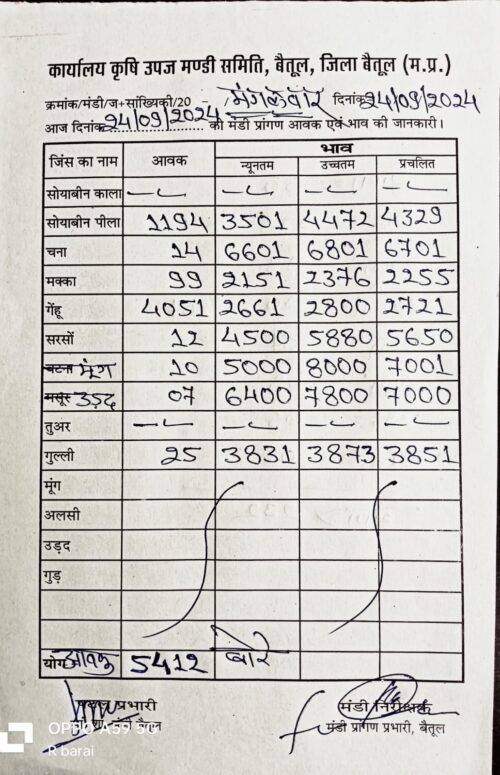 कार्यालय कृषि उपज मण्डी समिति, बैतूल, जिला बैतूल (म.प्र.)
क्रमांक/मंडी/ज+सांख्यिकी/20 - मंगलवार दिनांक 24/09/2024
आज दिनांक 24/09/2024 की मंडी प्रांगण आवक एवं भाव की जानकारी।
जिंस का नाम आवक भाव
न्यूनतम उच्चतम प्रचलित
सोयाबीन काला -- -- -- --
सोयाबीन पीला 1194 3501 4472 4329
चना 14 6601 6801 6701
मक्का 99 2151 2376 2255
गेंहू 4051 2661 2800 2721
सरसों 12 4500 5880 5650
बटना मूंग 10 5000 8000 7001
मसूर उड़द 07 6400 7800 7000
तुअर -- -- -- --
गुल्ली 25 3831 3873 3851
मूंग
अलसी
उड़द
गुड़
योग आवक 5412 बोरे
प्रभारी मंडी निरीक्षक
बैतूल मंडी प्रांगण प्रभारी, बैतूल
OPPO A59 5G
R barai